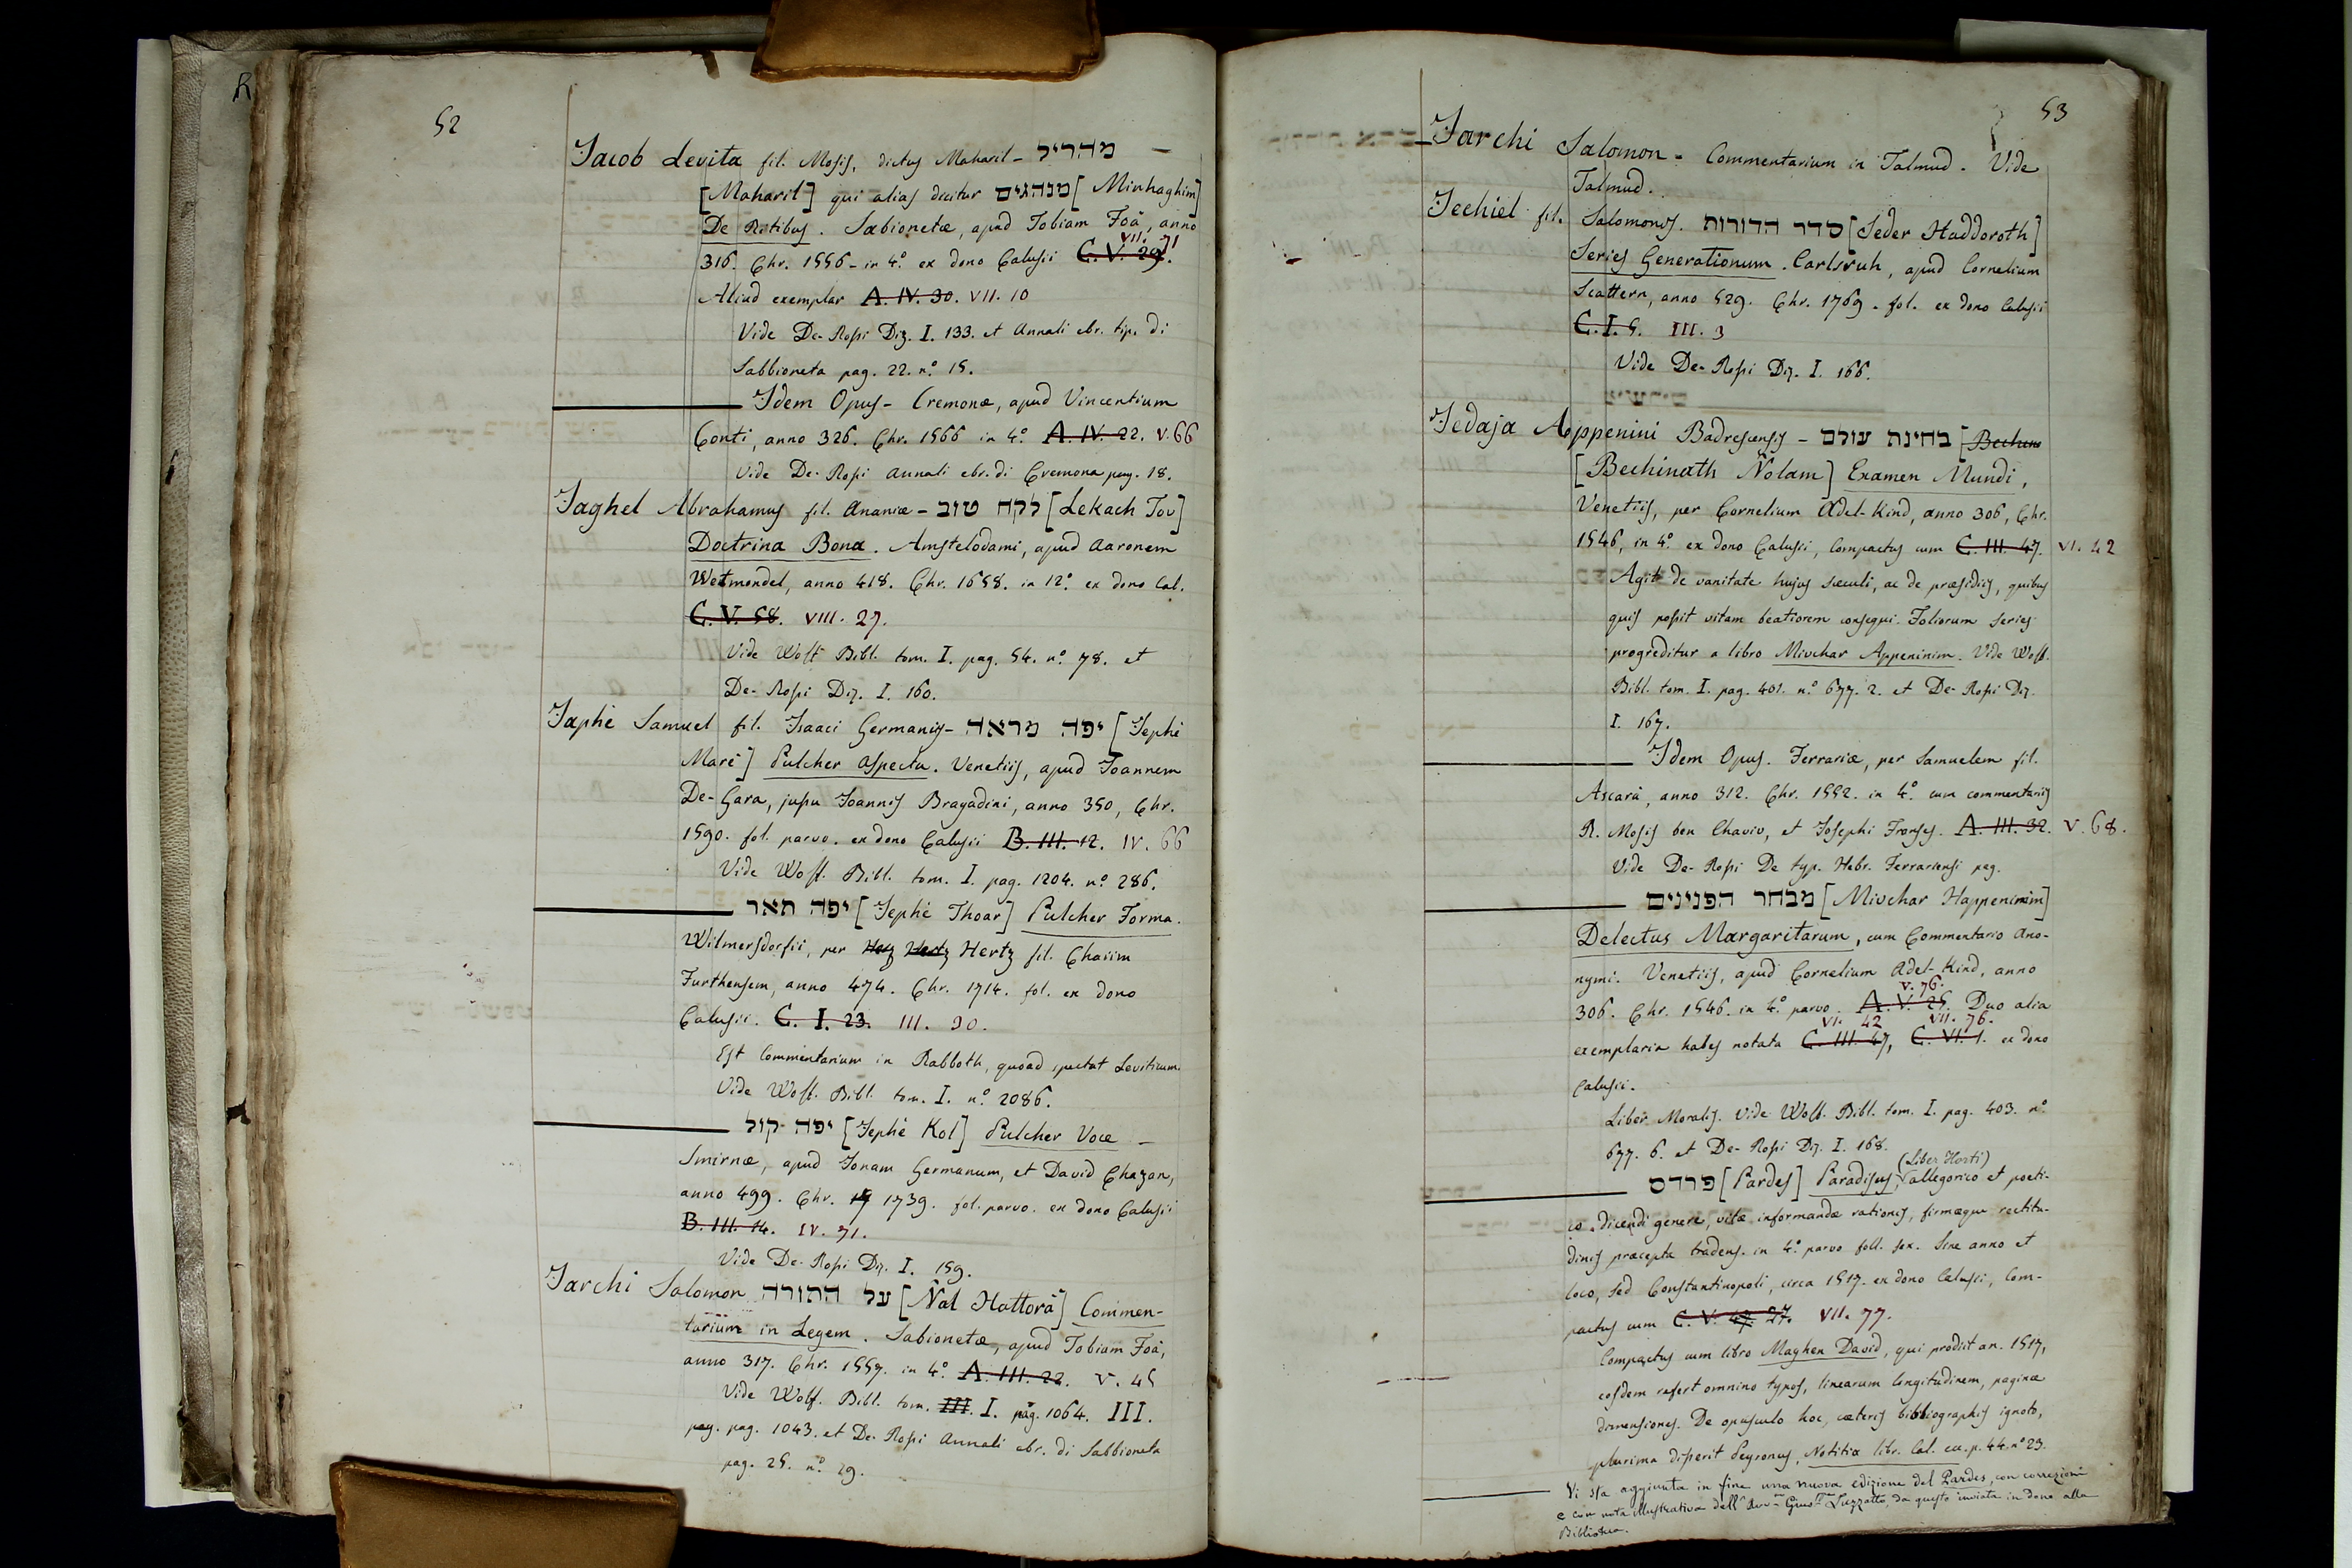 52
Jacob Levita fil. Mosis, dictus Maharil - מהריל -
[Maharil] qui alias dicitur מנהגים [Minhaghim]
De Ritibus. Sabionetæ, apud Tobiam Foà, anno
VII. 71
316. Chr. 1556 - in 4.° ex dono Calusii C. V. 29.
Aliud exemplar A. IV. 30. VII. 10
Vide De-Rossi Diz. I. 133. et Annali ebr. tip. di
Sabbioneta pag. 22. n.° 15.
Idem Opus - Cremonæ, apud Vincentium
Conti, anno 326. Chr. 1566 in 4.° A. IV. 22. V. 66
Vide De-Rossi Annali ebr. di Cremona pag. 18.
Jaghel Abrahamus fil. Ananiæ - לקח טוב [Lekach Tov]
Doctrina Bona. Amstelodami, apud Aaronem
Wetmondel, anno 418. Chr. 1658. in 12.° ex dono Cal.
C. V. 58. VIII. 27.
Vide Wolf. Bibl. tom. I. pag. 54. n.° 78. et
De-Rossi Diz. I. 160.
Japhè Samuel fil. Isaaci Germanus - יפה מראה [Jephè
Marè] Pulcher aspectu. Venetiis, apud Joannem
De-Gara, jussu Joannis Bragadini, anno 350, Chr.
1590. fol. parvo. ex dono Calusii B. III. 12. IV. 66
Vide Wolf. Bibl. tom. I. pag. 1204. n.° 286.
יפה תאר [Jephè Thoar] Pulcher Forma.
Wilmersdorfii, per Hertz Hertz Hertz fil. Chaiim
Furthensem, anno 474. Chr. 1714. fol. ex dono
Calusii. C. I. 23. III. 90.
Est Commentarium in Rabboth, quoad spectat Leviticum.
Vide Wolf. Bibl. tom. I. n.° 2086.
יפה קול [Jephè Kol] Pulcher Voce -
Smirnæ, apud Jonam Germanum, et David Chazan,
anno 499. Chr. 17 1739. fol. parvo. ex dono Calusii
B. III. 14. IV. 71.
Vide De-Rossi Diz. I. 159.
Jarchi Salomon על התורה [Ñal Hattorà] Commen-
tarium in Legem. Sabionetæ, apud Tobiam Foà,
anno 317. Chr. 1557. in 4.° A. III. 22. V. 45
Vide Wolf. Bibl. tom. III. I. pag. 1064. III.
pag. pag. 1043. et De-Rossi Annali ebr. di Sabbioneta
pag. 25. n.° 29.
53
Jarchi Salomon - Commentarium in Talmud. Vide
Talmud.
Jechiel fil. Salomonis. סדר הדורות [Seder Haddoroth]
Series Generationum. Carlsruh, apud Cornelium
Scattern, anno 529. Chr. 1769. fol. ex dono Calusii
C. I. 5. III. 3
Vide De-Rossi Diz. I. 166.
Jedaja Appenini Badrescensis - בחינת עולם [Bechina
[Bechinath Ñolam] Examen Mundi,
Venetiis, per Cornelium Adel-Kind, anno 306, Chr.
1546, in 4.° ex dono Calusii, compactus cum C. III. 47. VI. 42
Agit de vanitate hujus sæculi, ac de præsidiis, quibus
quis possit vitam beatiorem consequi. Foliorum series
progreditur a libro Mivchar Appeninim. Vide Wolf.
Bibl. tom. I. pag. 401. n.° 677. 2. et De-Rossi Diz.
I. 167.
Idem Opus. Ferrariæ, per Samuelem fil.
Ascarà, anno 312. Chr. 1552. in 4.° cum commentariis
R. Mosis ben Chaviv, et Josephi Franses. A. III. 32. V. 68.
Vide De-Rossi De typ. Hebr. Ferrariensi pag.
מבחר הפנינים [Mivchar Happeninim]
Delectus Margaritarum, cum Commentario Ano-
nymi. Venetiis, apud Cornelium Adel-Kind, anno
V. 76.
306. Chr. 1546. in 4.° parvo. A. V. 25. Duo alia
VI. 42 VII. 76.
exemplaria habes notata C. III. 47, C. VI. 1. ex dono
Calusii.
Liber Moralis. Vide Wolf. Bibl. tom. I. pag. 403. n.°
677. 6. et De-Rossi Diz. I. 168.
(Liber Horti)
פרדס [Pardes] Paradisus, allegorico et poeti-
co dicendi genere, vitæ informandæ rationis, firmæque rectitu-
dinis præcepta tradens. in 4.° parvo foll. sex. Sine anno et
loco, sed Constantinopoli, circa 1517. ex dono Calusii, com-
pactus cum C. V. 47. 27. VII. 77.
Compactus cum libro Maghen David, qui prodiit an. 1517,
eosdem refert omnino typos, linearum longitudinem, paginæ
dimensiones. De opusculo hoc, cæteris bibliographis ignoto,
plurima disserit Peyronus, Notitia libr. Cal. cu. p. 44. n.° 23.
Vi sta aggiunta in fine una nuova edizione del Pardes, con correzioni
e con nota illustrativa dell' Avv. Gius. Luzzatto, da questo inviata in dono alla
Biblioteca.